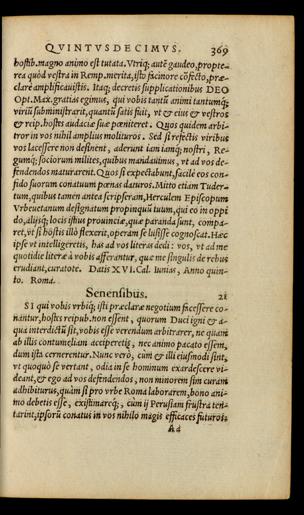 QVINTVSDECIMVS. 369
hostib. magno animo est tutata. Vtriq; autē gaudeo, propte-
rea quòd vestra in Remp. merita, isto facinore cōfecto, præ-
clarè amplificauistis. Itaq; decretis supplicationibus DEO
Opt. Max. gratias egimus, qui vobis tantū animi tantumq́;
viriū subministrarit, quantū satis fuit, vt & eius & vestros
& reip. hostes audaciæ suæ pœniteret. Quos quidem arbi-
tror in vos nihil amplius molituros. Sed si refectis viribus
vos lacessere non desinent, aderunt iam iamq́; nostri, Re-
gumq́; sociorum milites, quibus mandauimus, vt ad vos de-
fendendos maturarent. Quos si expectabunt, facilè eos con-
fido suorum conatuum pœnas daturos. Mitto etiam Tuder-
tum, quibus tamen antea scripseram, Herculem Episcopum
Vrbeuetanum designatum propinquū tuum, qui eo in oppi
do, alijsq́; locis istius prouinciæ, quæ paranda sunt, compa-
ret, vt si hostis illò flexerit, operam se lusisse cognoscat. Hæc
ipse vt intelligeretis, has ad vos literas dedi: vos, vt ad me
quotidie literæ à vobis afferantur, quæ me singulis de rebus
erudiant, curatote. Datis XVI. Cal. Iunias, Anno quin-
to. Roma.
Senensibus. 21
SI qui vobis vrbiq́; isti præclaræ negotium facessere co-
nantur, hostes reipub. non essent, quorum Duci igni & a-
qua interdictū sit, vobis esse verendum arbitrarer, ne quam
ab illis contumeliam acciperetis, nec animo pacato essem,
dum ista cernerentur. Nunc verò, cùm & illi eiusmodi sint,
vt quoquò se vertant, odia in se hominum exardescere vi-
deant, & ego ad vos defendendos, non minorem sim curam
adhibiturus, quàm si pro vrbe Roma laborarem, bono ani-
mo debetis esse, existimareq́;, cùm ij Perusiam frustra ten-
tarint, ipsorū conatus in vos nihilo magis efficaces futuros.
Ad